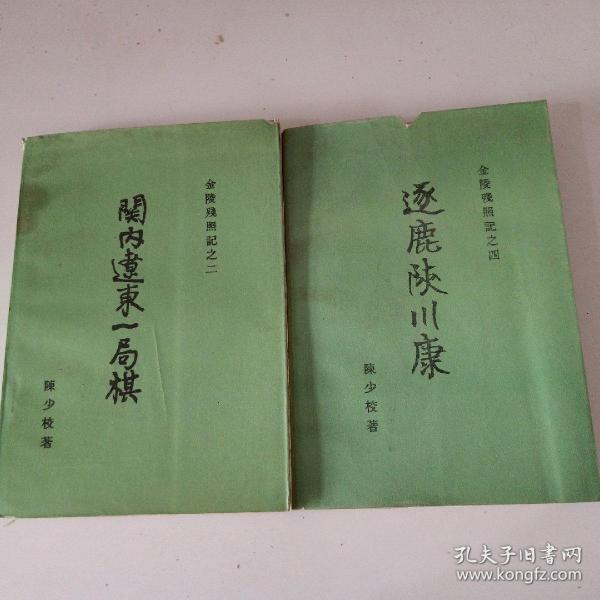 金陵殘照記之二
関内遼東一局棋
陳少校著
金陵殘照記之四
逐鹿陝川康
陳少校著
孔夫子旧书网
www.kongfz.com